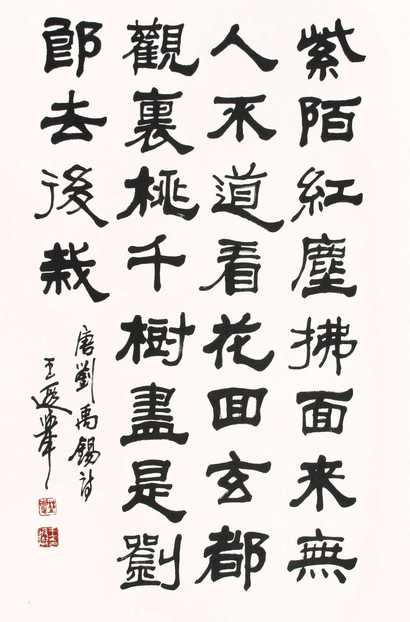 紫陌紅塵拂面來無
人不道看花回玄都
觀裏桃千樹盡是劉
郎去後栽
唐劉禹錫詩
王遐舉